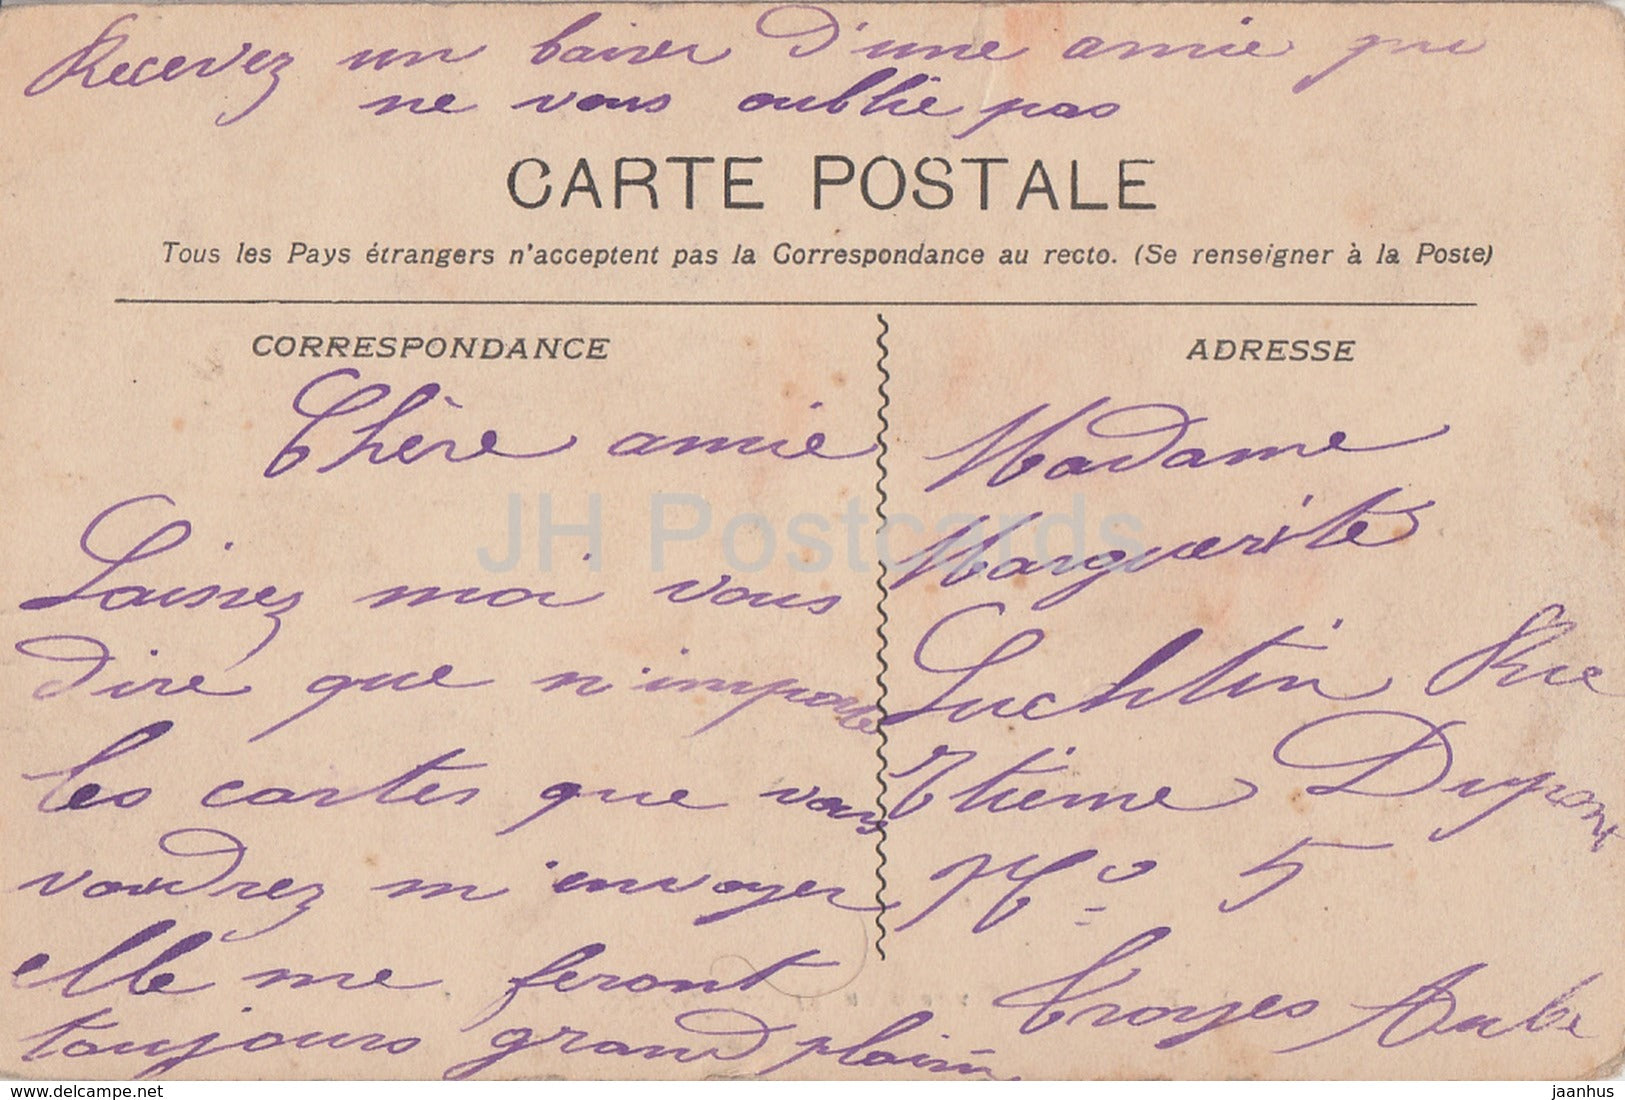 Recevez un baiser d'une amie que
ne vous oublie pas
CARTE POSTALE
Tous les Pays étrangers n'acceptent pas la Correspondance au recto. (Se renseigner à la Poste)
CORRESPONDANCE
Chère amie
Laissez moi vous
dire que n'importe
les cartes que vous
voudrez m'envoyer
elle me feront
toujours grand plaisir
ADRESSE
Madame
Marguerite
Luchtin Rue
Etieme Dupont
No 5
Troyes Aube
JH Postcards
www.delcampe.net
jaanhus